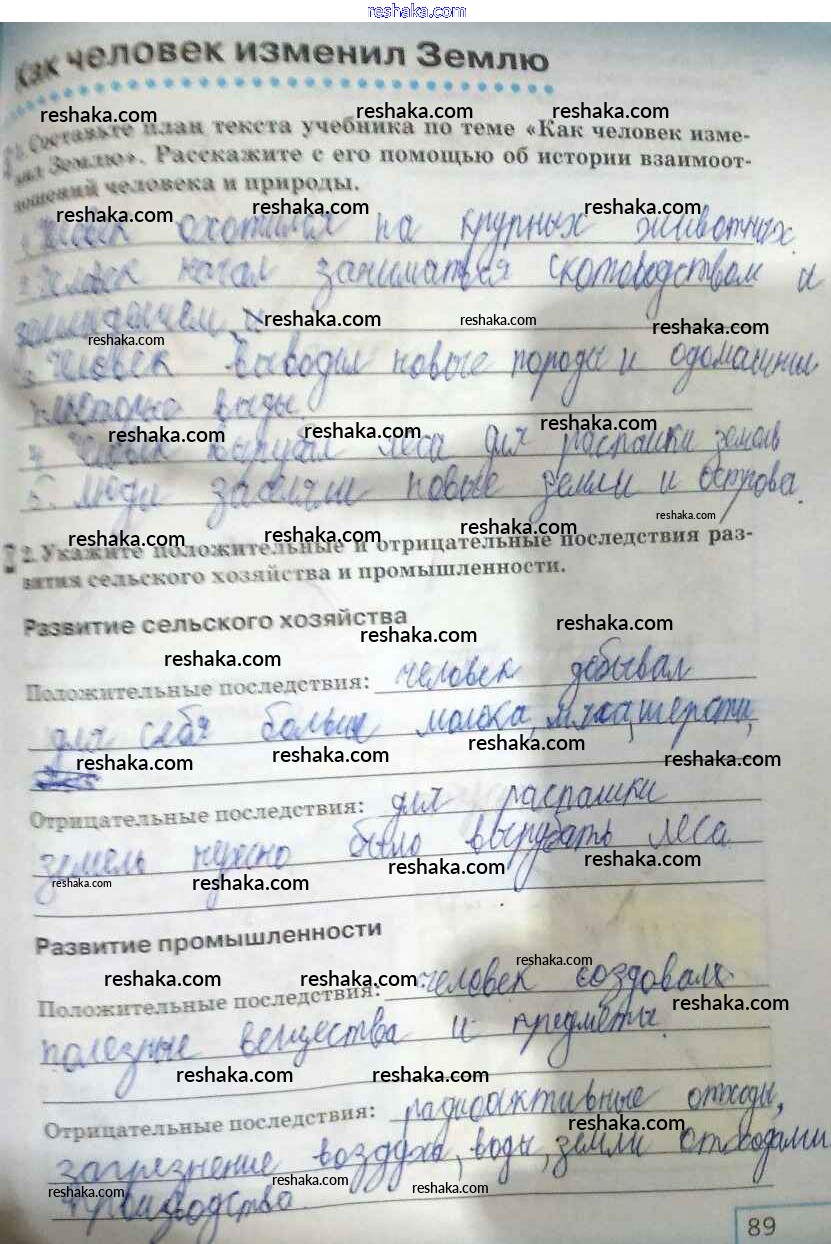 reshaka.com
Как человек изменил Землю
reshaka.com reshaka.com reshaka.com
1. Составьте план текста учебника по теме «Как человек изме-
нил Землю». Расскажите с его помощью об истории взаимоот-
ношений человека и природы.
reshaka.com reshaka.com reshaka.com
1. Человек охотился на крупных животных.
2. Человек начал заниматься скотоводством и
земледелием.
reshaka.com reshaka.com reshaka.com
reshaka.com
3. Человек выводил новые породы и одомашнил
некоторые виды.
reshaka.com reshaka.com reshaka.com
4. Человек вырубал леса для распашки земель
5. Люди заселяли новые земли и острова.
reshaka.com
reshaka.com reshaka.com reshaka.com
2. Укажите положительные и отрицательные последствия раз-
вития сельского хозяйства и промышленности.
Развитие сельского хозяйства
reshaka.com reshaka.com
reshaka.com
Положительные последствия: человек добывал
для себя больше молока, мяса, шерсти,
reshaka.com reshaka.com reshaka.com
reshaka.com
Отрицательные последствия: для распашки
земель нужно было вырубать леса
reshaka.com reshaka.com reshaka.com reshaka.com
Развитие промышленности
reshaka.com reshaka.com reshaka.com
Положительные последствия: человек создовал
reshaka.com
полезные вещества и предметы.
reshaka.com reshaka.com
Отрицательные последствия: радиоактивные отходы,
reshaka.com
загрязнение воздуха, воды, земли отходами
reshaka.com reshaka.com reshaka.com
производства.
89